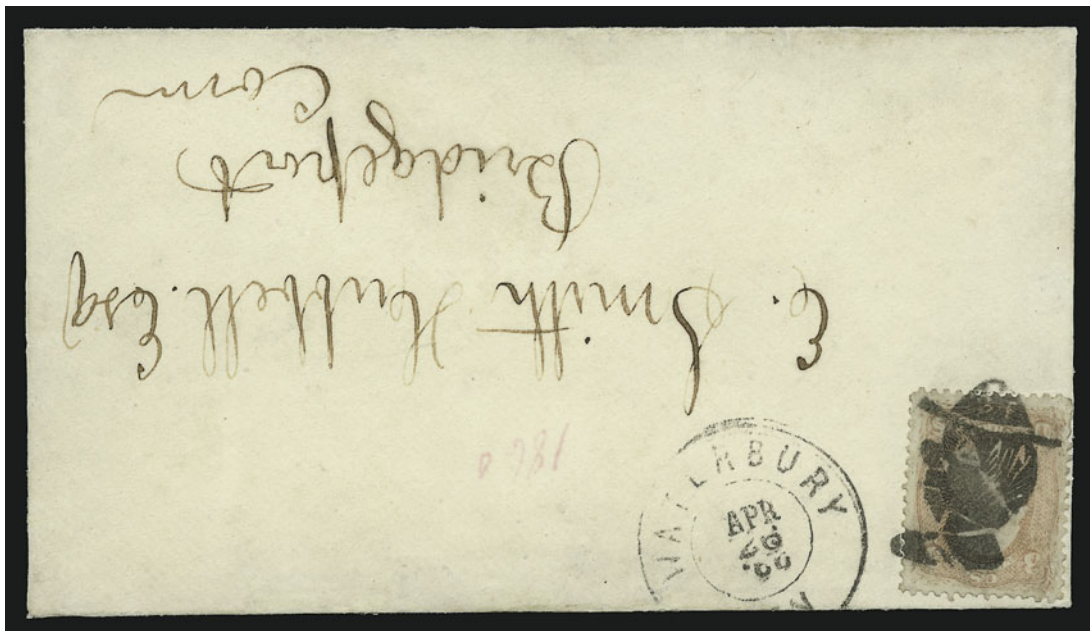 E. Smith Hubbell. Esq
Bridgeport
Conn
WATERBURY
APR